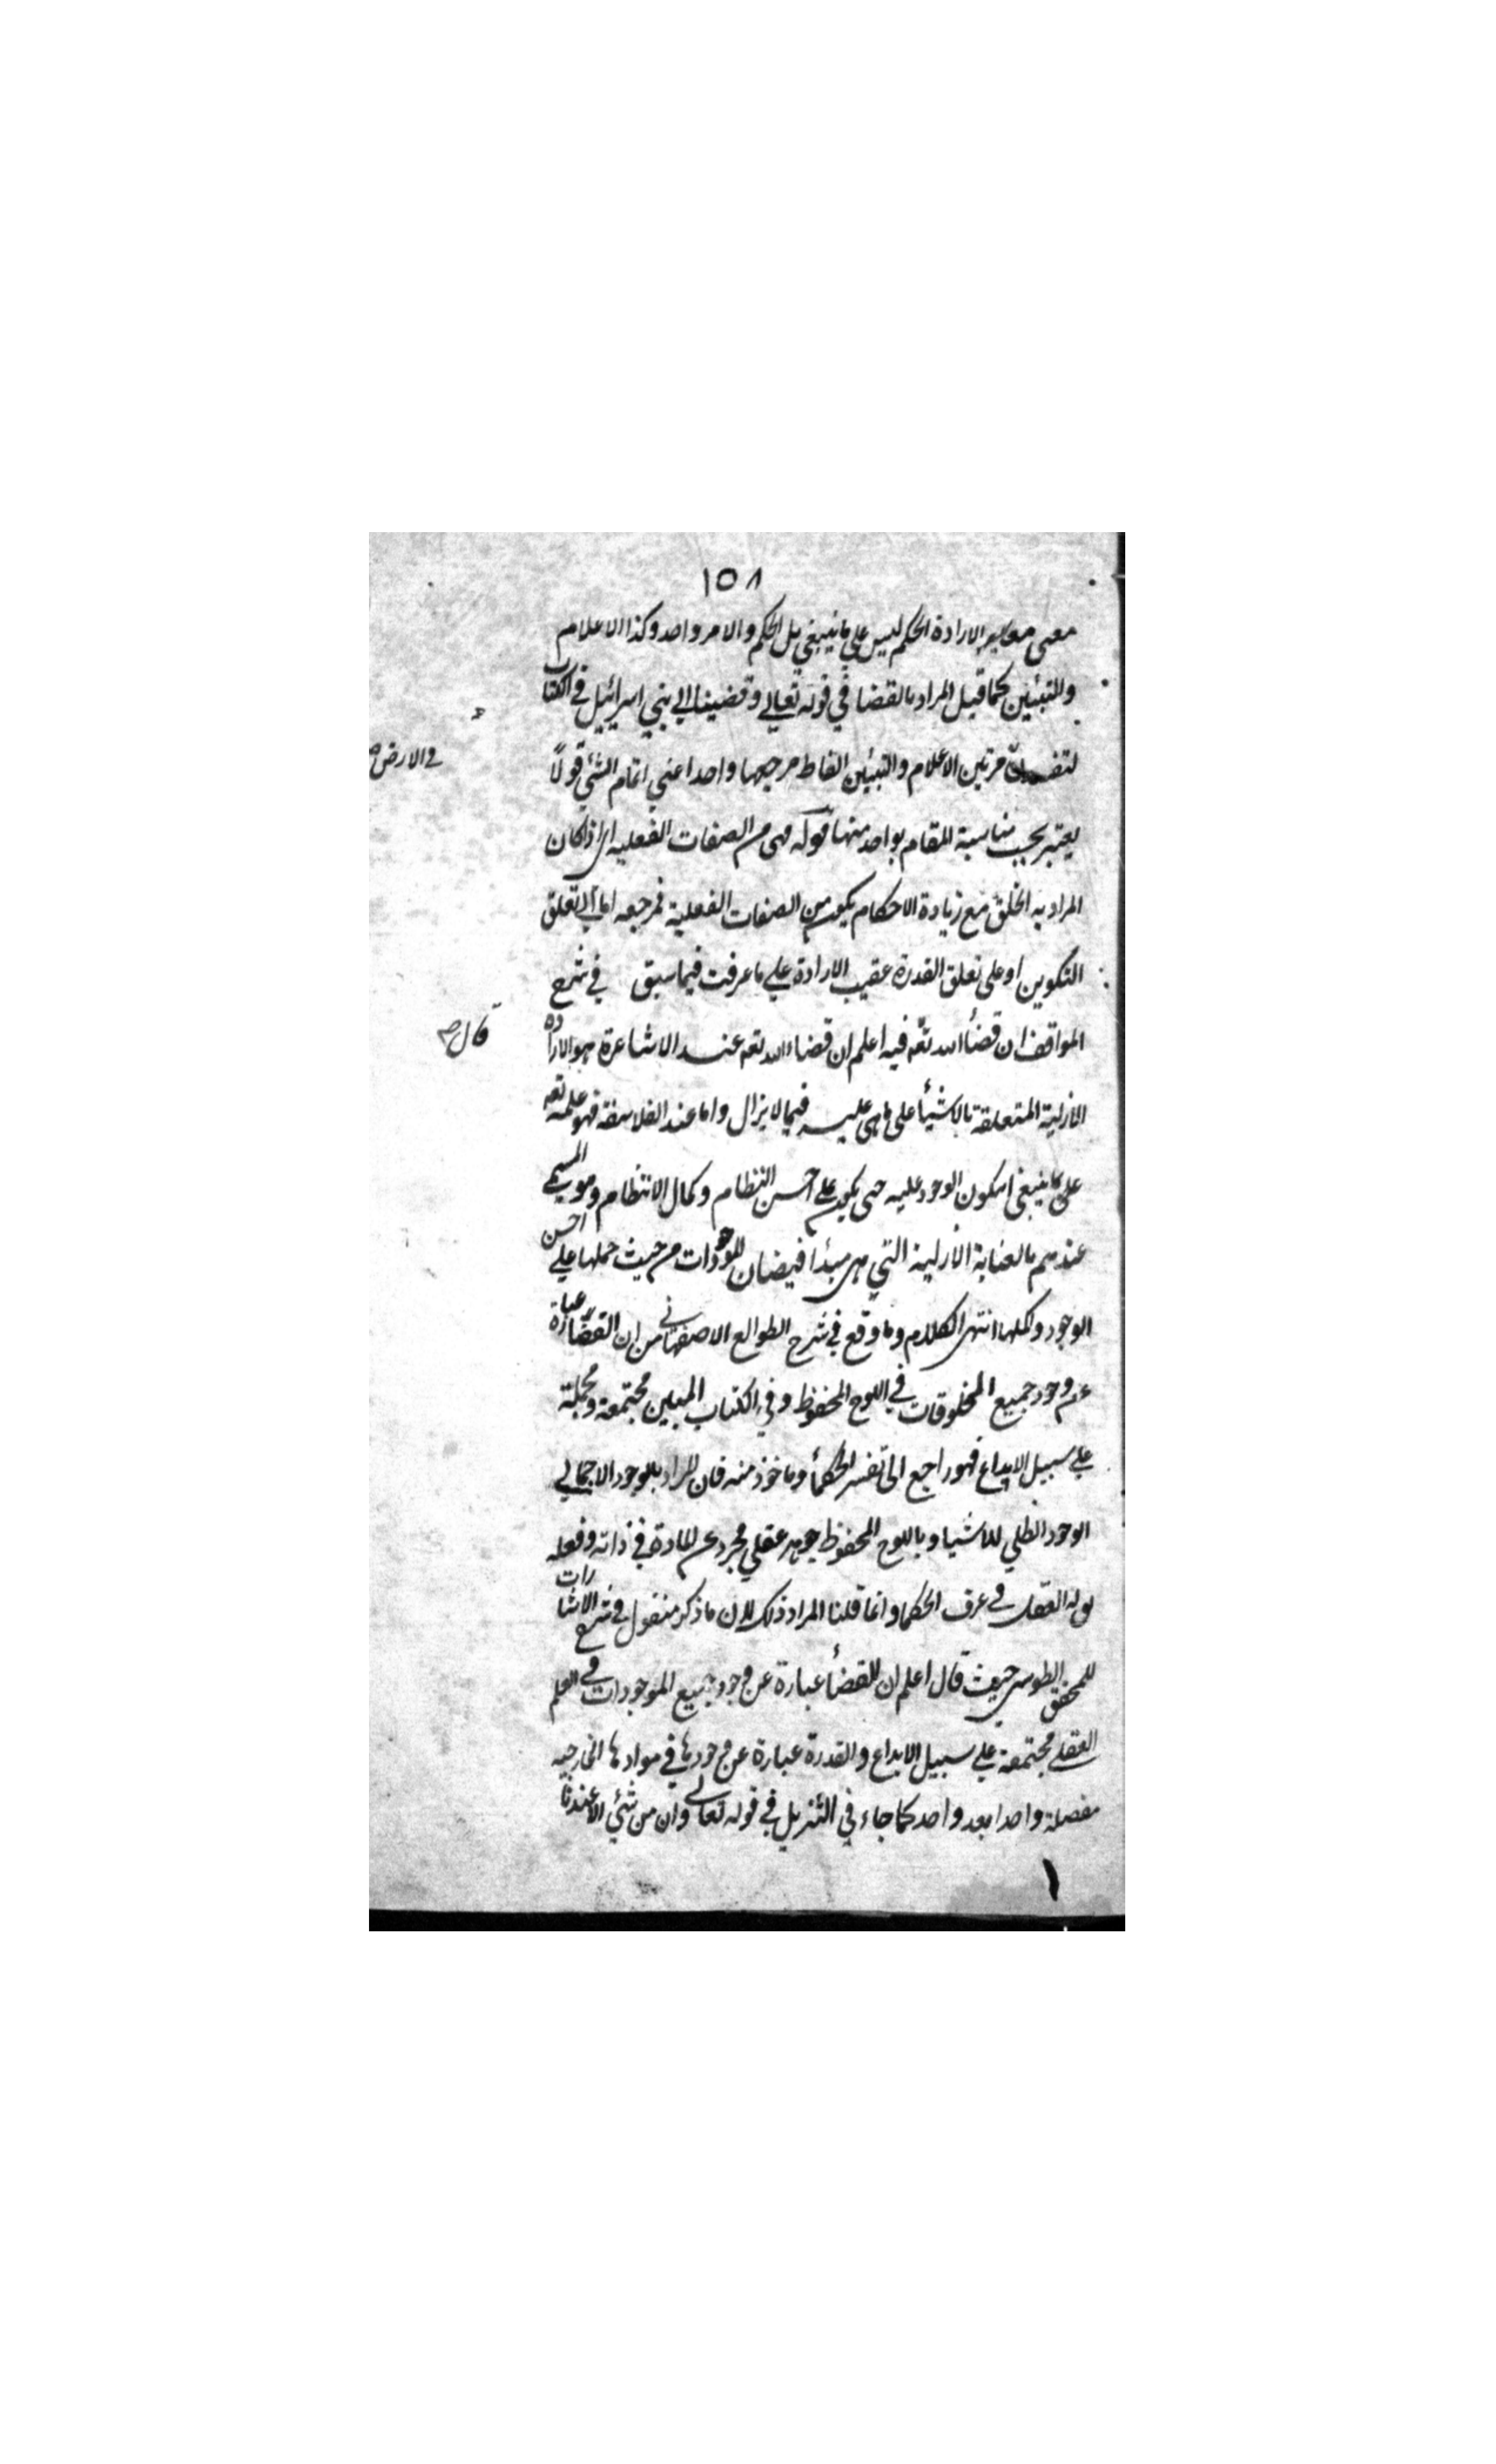 ١٥٨
معنى مغاير الارادة الحكم ليس على ما ينبغي بل الحكم والامر واحد وكذا الاعلام
والتبيين كما قيل المراد بالقضا في قوله تعالى وقضينا الى بني اسرائيل في الكتاب
لتفسدن مرتين الاعلام والتبيين الفاظ مرجعها واحد اعني اتمام الشئ قولاً
في الارض صح
يعتبر بحسب مناسبة المقام بواحد منها قوله فهى من الصفات الفعليه اى اذا كان
المراد به الخلق مع زيادة الاحكام يكون من الصفات الفعلية فمرجعه اما الى تعلق
التكوين او على تعلق القدرة عقيب الارادة على ما عرفت فيما سبق في شرح
قال صح
المواقف ان قضأ الله تعه فيه اعلم ان قضاء الله تعه عند الاشاعرة هو الارادة
الازلية المتعلقة بالاشيأ على ما هى عليه فيما لا يزال واما عند الفلاسفة فهو علمه تعه
على ما ينبغى ان يكون الوجود عليه حتى يكون على احسن النظام وكمال الانتظام وهو المسمى
عندهم بالعناية الازلية التي هى مبدأ فيضان الموجودات من حيث جملها على احسن
الوجود وكملها انتهى الكلام وما وقع في شرح الطوالع الاصفهاني من ان القضا عبارة
عن وجود جميع المخلوقات في اللوح المحفوظ وفي الكتاب المبين مجتمعة ومجملة
على سبيل الابداع فهو راجع الى تفسير الحكمأ وماخوذ منه فان المراد بالوجود الاجمالي
الوجود الظلي للاشيا وباللوح المحفوظ جوهر عقلي مجرد عن المادة في ذاته وفعله
يق له العقل في عرف الحكما وانما قلنا المراد ذلك لان ما ذكر منقول في شرح الاشارات
للمحقق الطوسى حيث قال اعلم ان القضأ عبارة عن وجود جميع الموجودات في العلم
العقلي مجتمعة على سبيل الابداع والقدرة عبارة عن وجودها في موادها الخارجيه
مفصلة واحدا بعد واحد كما جاء في التنزيل في قوله تعالى وان من شئ الا عندنا
١